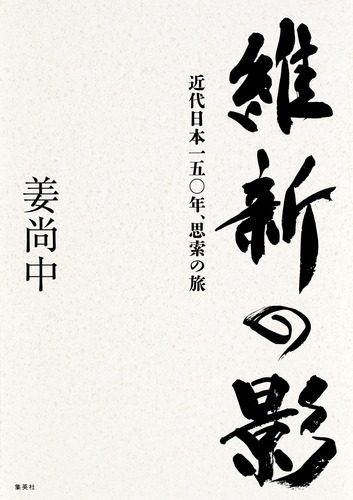 維新の影
近代日本一五〇年、思索の旅
姜尚中
集英社